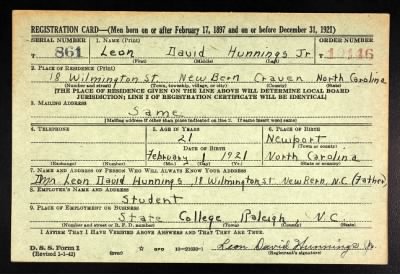 REGISTRATION CARD—(Men born on or after February 17, 1897 and on or before December 31, 1921)
SERIAL NUMBER 1. NAME (Print) ORDER NUMBER
T 861 Leon David Hunnings Jr T
(First) (Middle) (Last)
2. PLACE OF RESIDENCE (Print)
18 Wilmington St. New Bern Craven North Carolina
(Number and street) (Town, township, village, or city) (County) (State)
[THE PLACE OF RESIDENCE GIVEN ON THE LINE ABOVE WILL DETERMINE LOCAL BOARD
JURISDICTION; LINE 2 OF REGISTRATION CERTIFICATE WILL BE IDENTICAL]
3. MAILING ADDRESS
Same
[Mailing address if other than place indicated on line 2. If same insert word same]
4. TELEPHONE 5. AGE IN YEARS 6. PLACE OF BIRTH
21 Newport
DATE OF BIRTH (Town or county)
February 1921 North Carolina
(Exchange) (Number) (Mo.) (Day) (Yr.) (State or country)
7. NAME AND ADDRESS OF PERSON WHO WILL ALWAYS KNOW YOUR ADDRESS
Leon David Hunnings, 18 Wilmington St. New Bern, N.C. (Father)
8. EMPLOYER'S NAME AND ADDRESS
Student
9. PLACE OF EMPLOYMENT OR BUSINESS
State College Raleigh, N.C.
(Number and street or R. F. D. number) (Town) (County) (State)
I AFFIRM THAT I HAVE VERIFIED ABOVE ANSWERS AND THAT THEY ARE TRUE.
D. S. S. Form 1 GPO 16—21630-1 Leon David Hunnings Jr.
(Revised 1-1-42) (Registrant's signature)